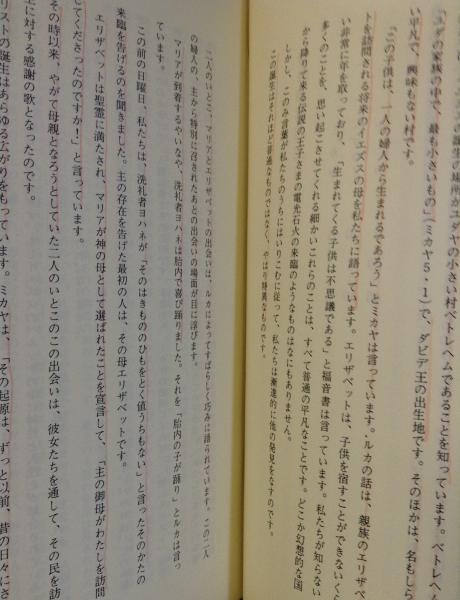 の誕生の場所がユダヤの小さい村ベトレヘムであることを知っています。ベトレヘ
「ユダの家族の中で、最も小さいもの」（ミカヤ5・1）で、ダビデ王の出生地です。そのほかは、名もしら
い平凡で、興味もない村です。
「この子供は、一人の婦人から生まれるであろう」とミカヤは言っています。ルカの話は、親族のエリザベ
トを訪問される将来のイエズスの母を私たちに語っています。エリザベットは、子供を宿すことができないくら
い非常に年を取っており、「生まれてくる子供は不思議である」と福音書は言っています。私たちが知らない
多くのことを、思い起こさせてくれる細かいこれらのことは、すべて普通の平凡なことです。どこか幻想的な国
から降りて来る伝説の王子さまの電光石火の来臨のようなものはなにもありません。
しかし、このみ言葉が私たちのうちにはいりこむに従って、私たちは漸進的に他の発見をなすのです。
この誕生はそれほど普通なものではなく、やはり特異なものです。
二人のいとこ、マリアとエリザベットの出会いは、ルカによってすばらしく巧みに語られています。この二人
の婦人の、主から特別に召されたあとの出会いの場面が目に浮びます。
マリアが到着するやいなや、洗礼者ヨハネは胎内で喜び踊りました。それを「胎内の子が踊り」とルカは言っ
ています。
この前の日曜日、私たちは、洗礼者ヨハネが「そのはきもののひもをとく値うちもない」と言ったそのかたの
来臨を告げるのを聞きました。主の存在を告げた最初の人は、その母エリザベットです。
エリザベットは聖霊に満たされ、マリアが神の母として選ばれたことを宣言して、「主の御母がわたしを訪問
してくださったのですか！」と言っています。
その時以来、やがて母親となろうとしていた二人のいとこのこの出会いは、彼女たちを通して、その民を訪
主に対する感謝の歌となったのです。
リストの誕生はあらゆる広がりをもっています。ミカヤは、「その起原は、ずっと以前、昔の日々にさ